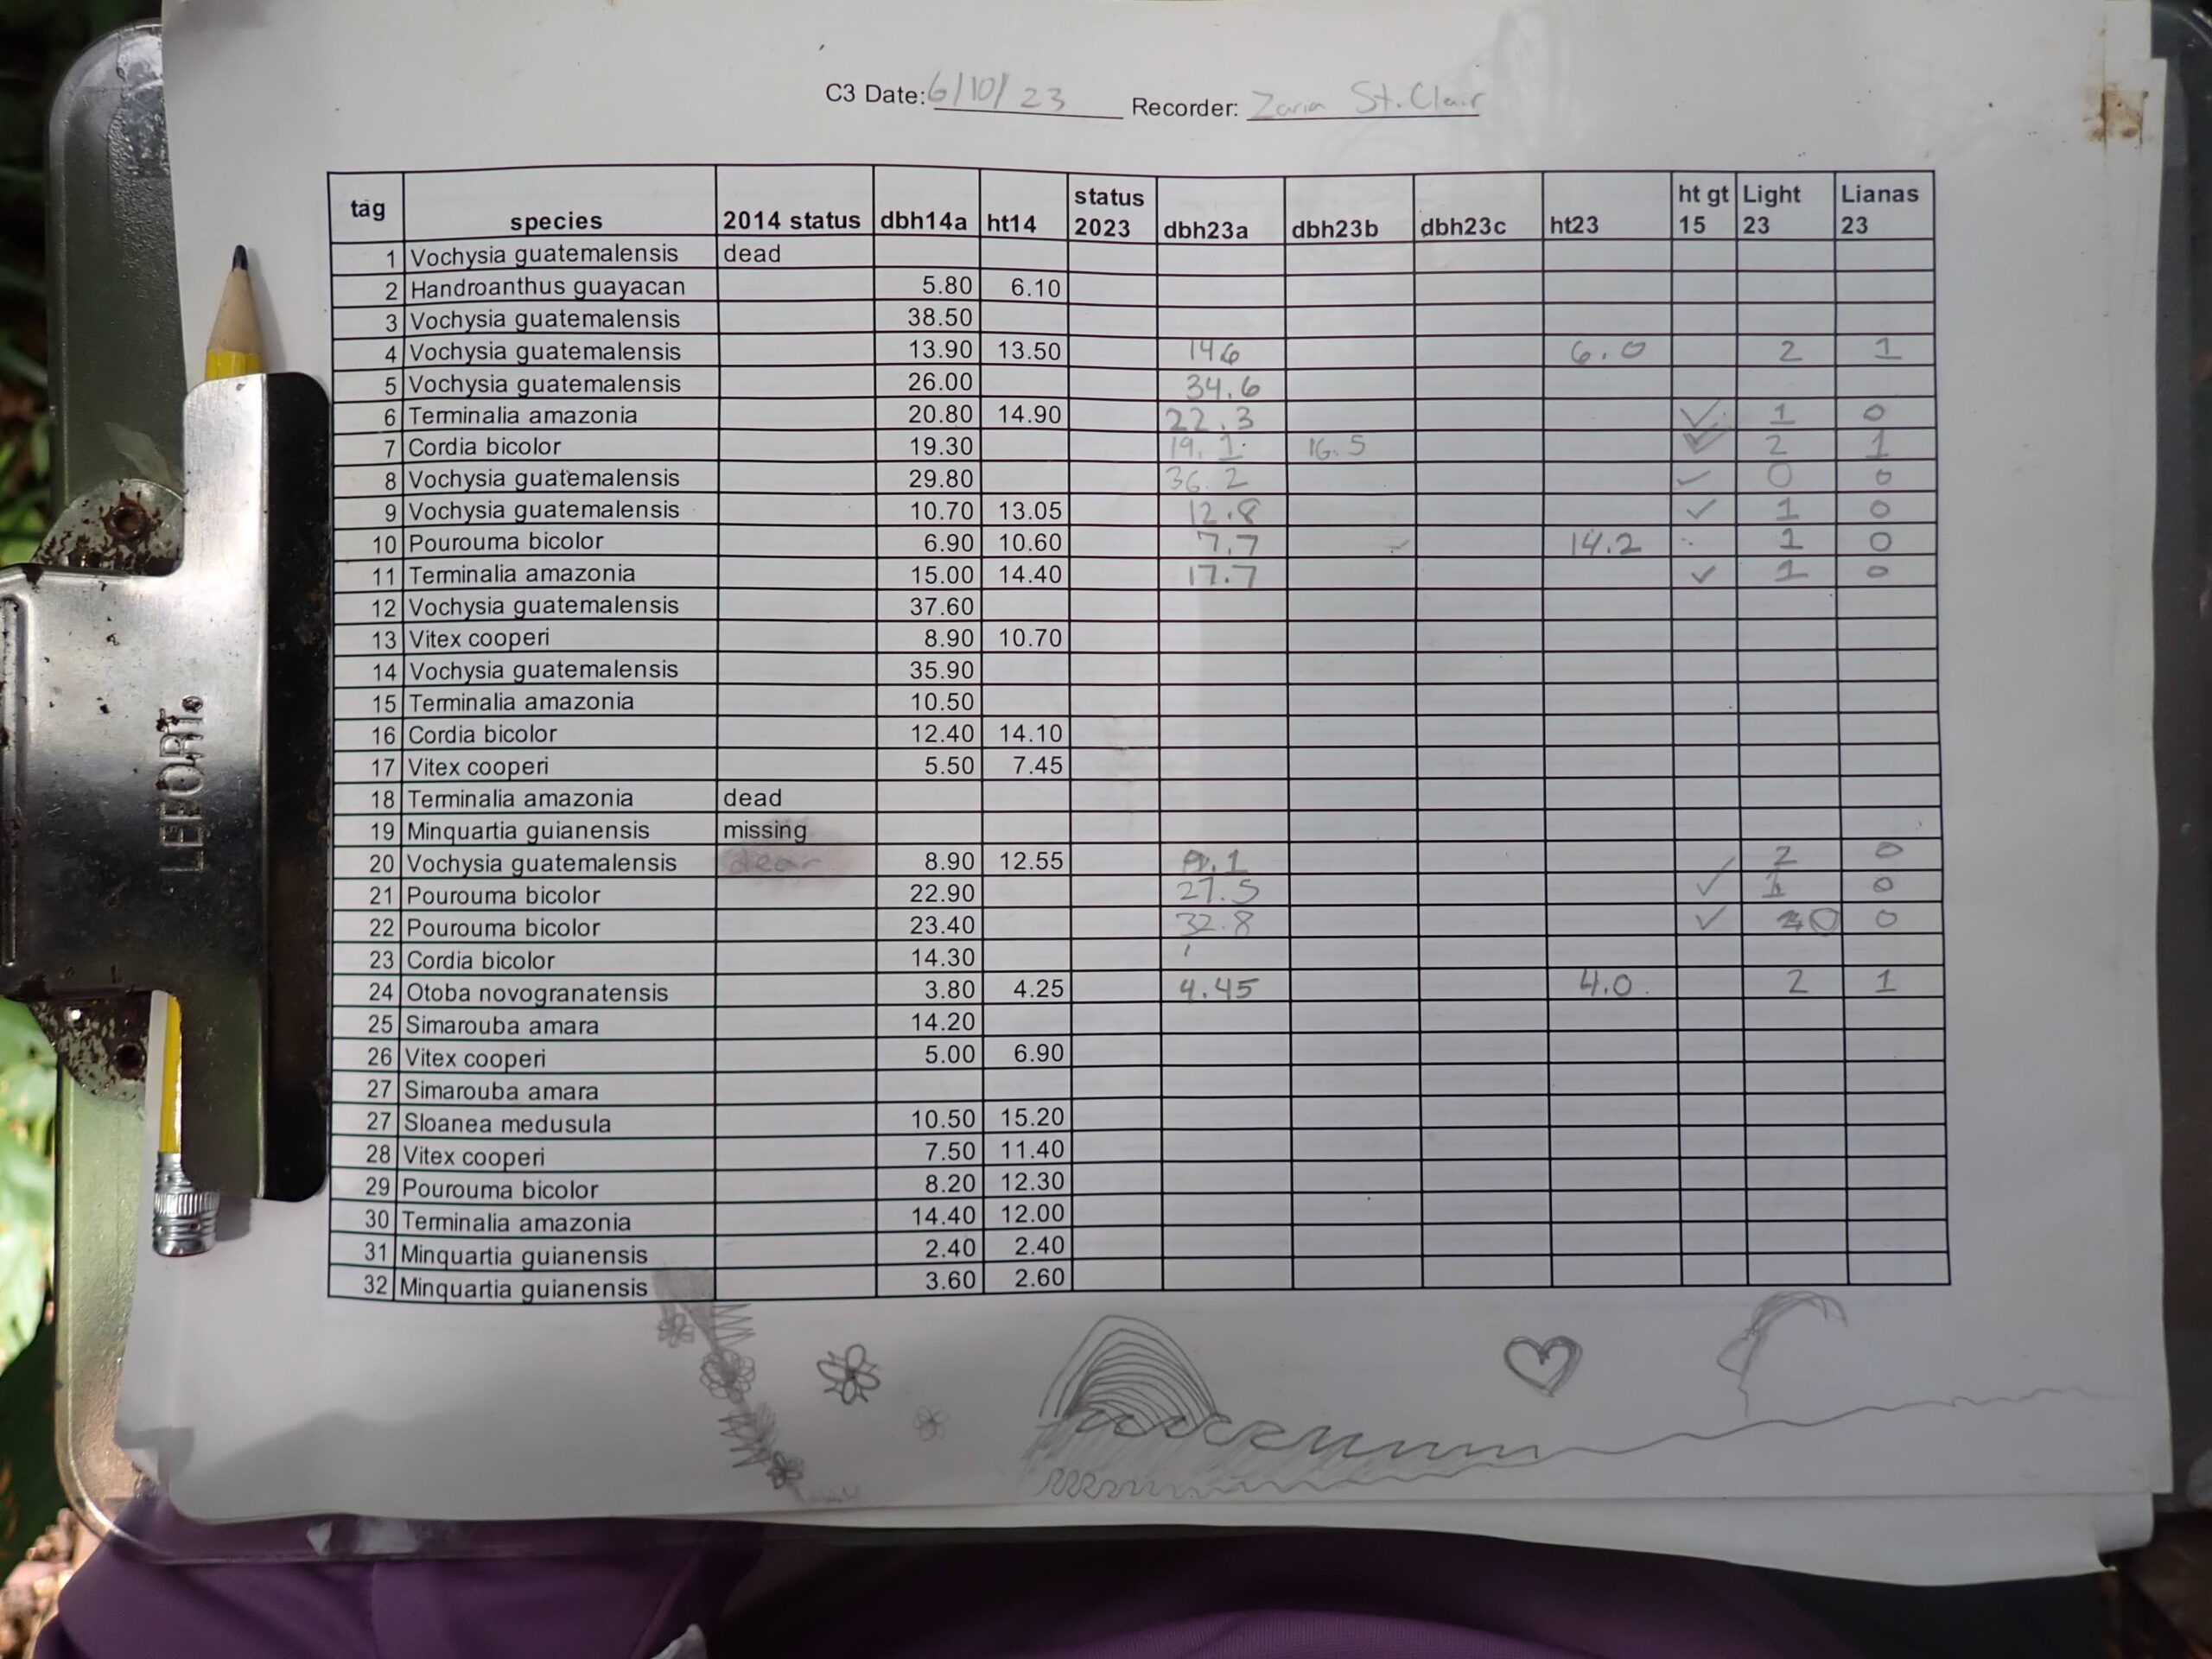 C3 Date: 6/10/23 Recorder: Zaria St. Clair
tag species 2014 status dbh14a ht14 status 2023 dbh23a dbh23b dbh23c ht23 ht gt 15 Light 23 Lianas 23
1 Vochysia guatemalensis dead
2 Handroanthus guayacan 5.80 6.10
3 Vochysia guatemalensis 38.50
4 Vochysia guatemalensis 13.90 13.50 14.6 6.0 2 1
5 Vochysia guatemalensis 26.00 34.6
6 Terminalia amazonia 20.80 14.90 22.3 ✓ 1 0
7 Cordia bicolor 19.30 19.1 16.5 ✓ 2 1
8 Vochysia guatemalensis 29.80 36.2 ✓ 0 0
9 Vochysia guatemalensis 10.70 13.05 12.8 ✓ 1 0
10 Pourouma bicolor 6.90 10.60 7.7 14.2 1 0
11 Terminalia amazonia 15.00 14.40 17.7 ✓ 1 0
12 Vochysia guatemalensis 37.60
13 Vitex cooperi 8.90 10.70
14 Vochysia guatemalensis 35.90
15 Terminalia amazonia 10.50
16 Cordia bicolor 12.40 14.10
17 Vitex cooperi 5.50 7.45
18 Terminalia amazonia dead
19 Minquartia guianensis missing
20 Vochysia guatemalensis 8.90 12.55 ✓ 2 0
21 Pourouma bicolor 22.90 27.5 ✓ 1 0
22 Pourouma bicolor 23.40 32.8 ✓ 0 0
23 Cordia bicolor 14.30
24 Otoba novogranatensis 3.80 4.25 4.45 4.0 2 1
25 Simarouba amara 14.20
26 Vitex cooperi 5.00 6.90
27 Simarouba amara
27 Sloanea medusula 10.50 15.20
28 Vitex cooperi 7.50 11.40
29 Pourouma bicolor 8.20 12.30
30 Terminalia amazonia 14.40 12.00
31 Minquartia guianensis 2.40 2.40
32 Minquartia guianensis 3.60 2.60
LEFORT